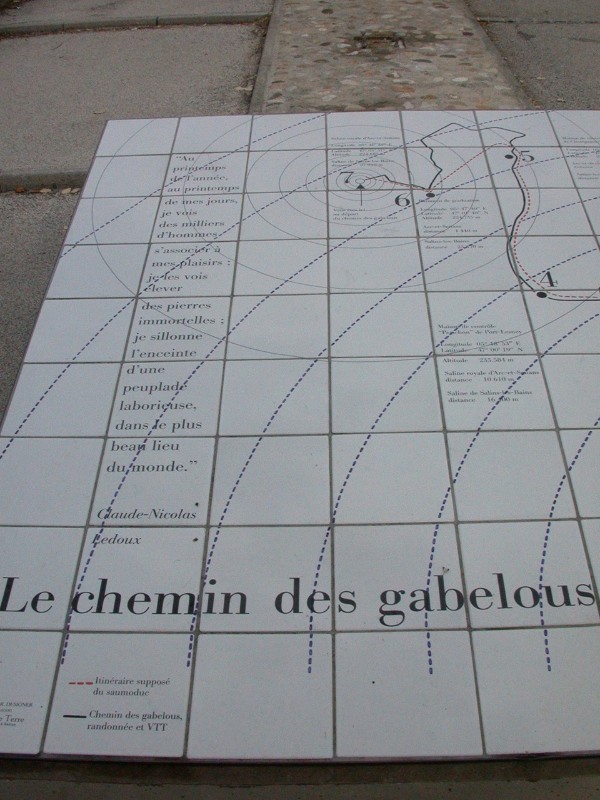 "Au
printemps
de l'année,
au printemps
de mes jours,
je vois
des milliers
d'hommes
s'associer à
mes plaisirs ;
je les vois
élever
des pierres
immortelles ;
je sillonne
l'enceinte
d'une
peuplade
laborieuse,
dans le plus
beau lieu
du monde."
Claude-Nicolas
Ledoux
7
6
5
4
Maison de contrôle
Longitude 05° 48' 53" E
Latitude 47° 00' 19" N
Altitude 235.584 m
Saline royale d'Arc-et-Senans
distance 10.610 m
Saline de Salins-les-Bains
distance
Le chemin des gabelous
Itinéraire supposé
du saumoduc
Chemin des gabelous,
randonnée et VTT